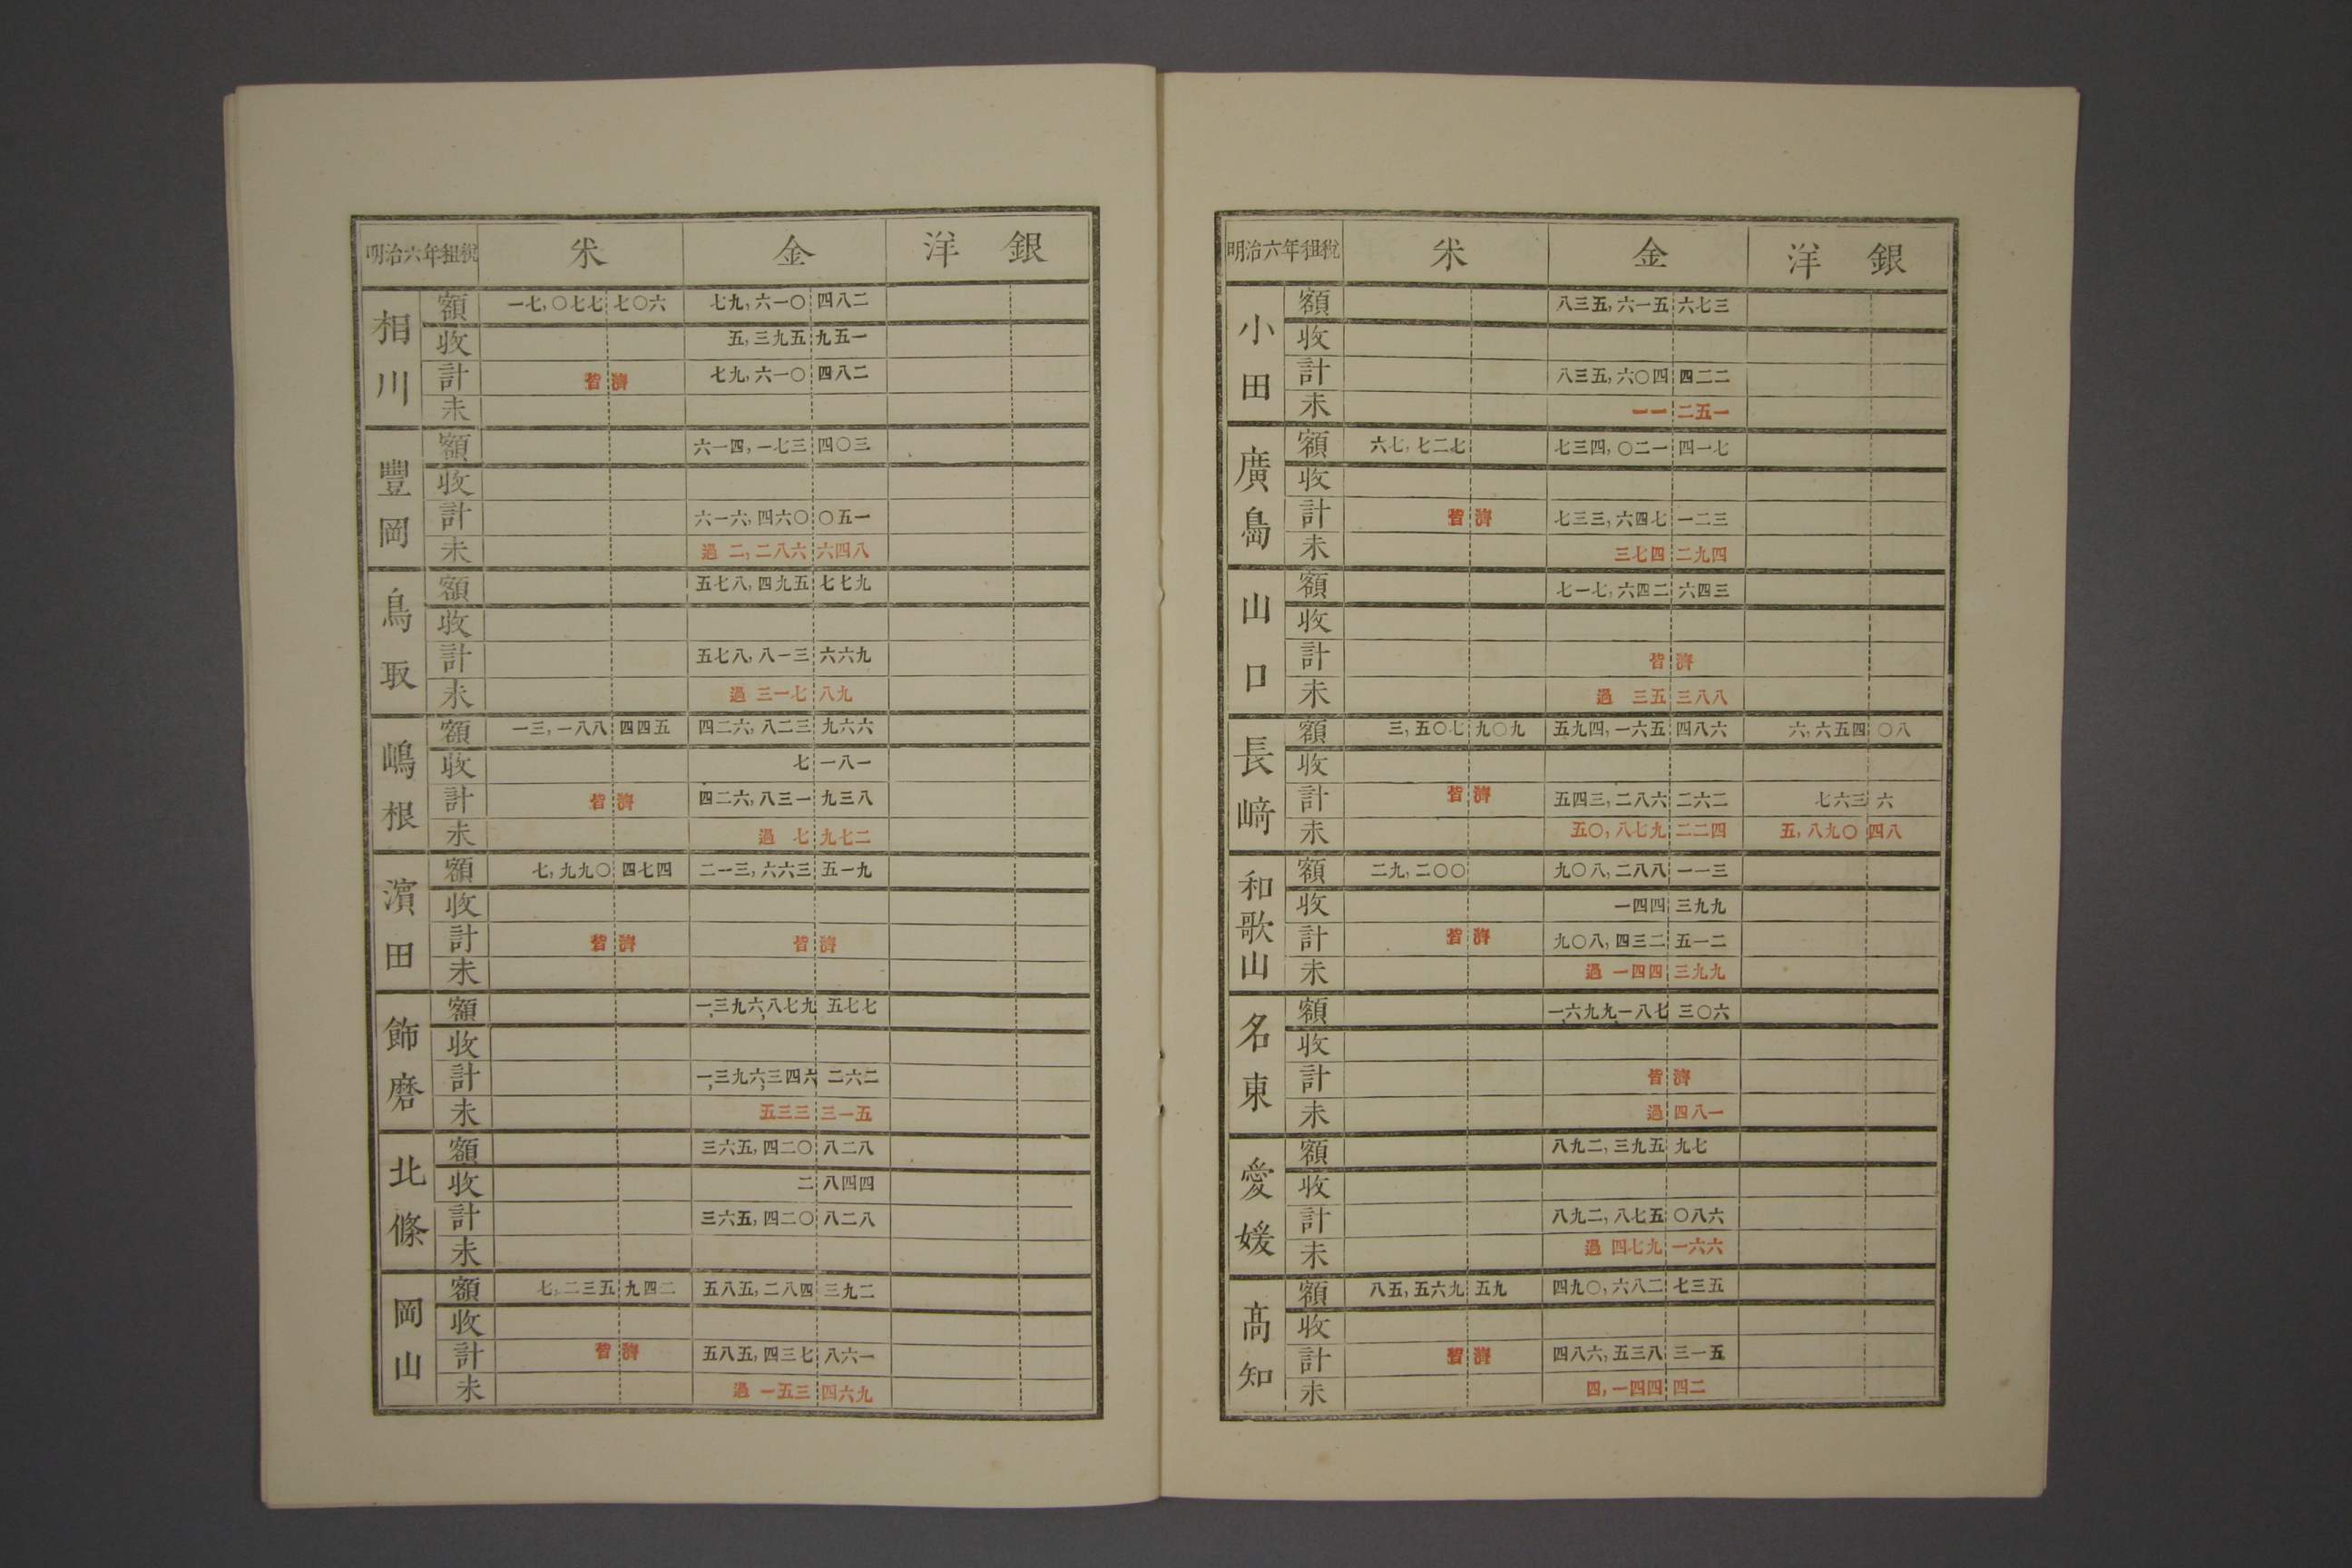 明治六年租税 米 金 洋銀
相川 額 一七,〇七七 七〇六 七九,六一〇 四八二
收 五,三九五 九五一
計 皆濟 七九,六一〇 四八二
未
豐岡 額 六一四,一七三 四〇三
收
計 六一六,四六〇 〇五一
未 過 二,二八六 六四八
鳥取 額 五七八,四九五 七七九
收
計 五七八,八一三 六六九
未 過 三一七 八九
嶋根 額 一三,一八八 四四五 四二六,八二三 九六六
收 七 一八一
計 皆濟 四二六,八三一 九三八
未 過 七 九七二
濱田 額 七,九九〇 四七四 二一三,六六三 五一九
收
計 皆濟 皆濟
未
飾磨 額 一,三九六,八七九 五七七
收
計 一,三九六,三四六 二六二
未 五三三 三一五
北條 額 三六五,四二〇 八二八
收 二 八四四
計 三六五,四二〇 八二八
未
岡山 額 七,二三五 九四二 五八五,二八四 三九二
收
計 皆濟 五八五,四三七 八六一
未 過 一五三 四六九
明治六年租税 米 金 洋銀
小田 額 八三五,六一五 六七三
收
計 八三五,六〇四 四二二
未 一一 二五一
廣島 額 六七,七二七 七三四,〇二一 四一七
收
計 皆濟 七三三,六四七 一二三
未 三七四 二九四
山口 額 七一七,六四二 六四三
收
計 皆濟
未 過 三五 三八八
長崎 額 三,五〇七 九〇九 五九四,一六五 四八六 六,六五四 〇八
收
計 皆濟 五四三,二八六 二六二 七六三 六
未 五〇,八七九 二二四 五,八九〇 四八
和歌山 額 二九,二〇〇 九〇八,二八八 一一三
收 一四四 三九九
計 皆濟 九〇八,四三二 五一二
未 過 一四四 三九九
名東 額 一,六九九,一八七 三〇六
收
計 皆濟
未 過 四八一
愛媛 額 八九二,三九五 九七
收
計 八九二,八七五 〇八六
未 過 四七九 一六六
高知 額 八五,五六九 五九 四九〇,六八二 七三五
收
計 皆濟 四八六,五三八 三一五
未 四,一四四 四二